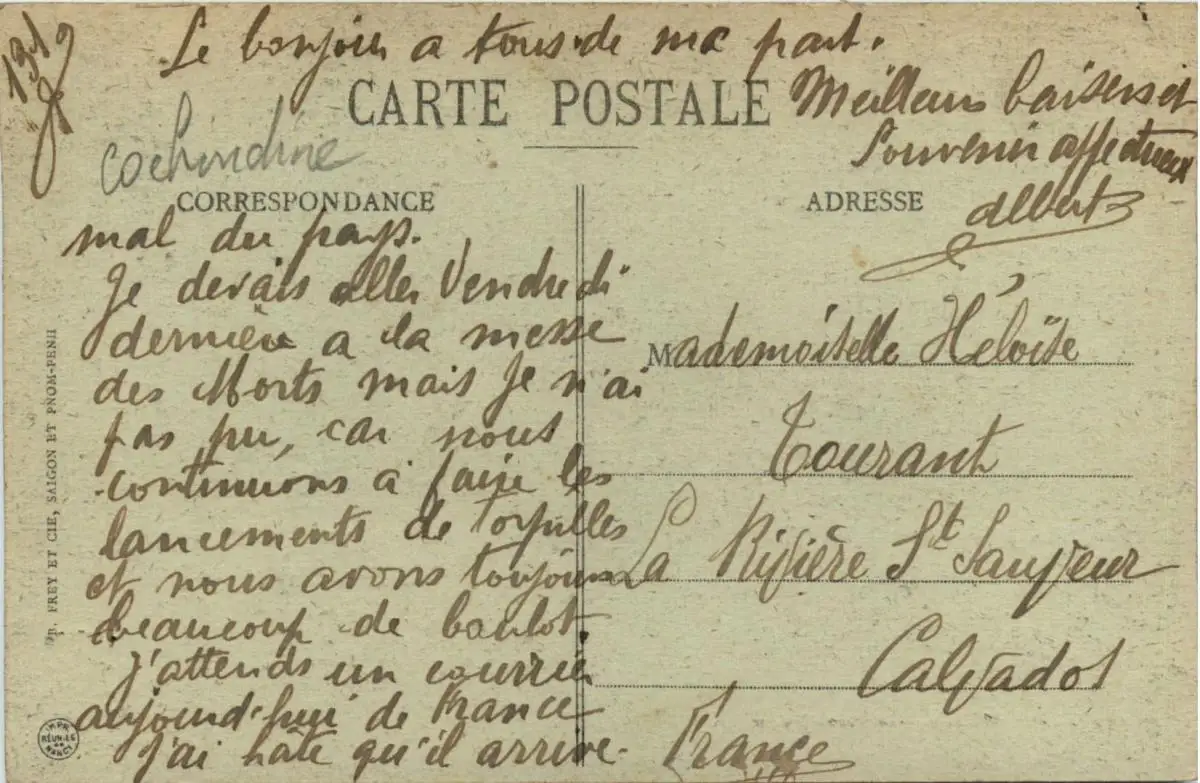 Le bonjour a tous de ma part.
CARTE POSTALE
Meilleurs baisers et
Souvenir affectueux
Albert
Cochinchine
CORRESPONDANCE
mal du pays.
Je devais aller Vendredi
dernière a la messe
des Morts mais je n'ai
pas pu, car nous
continuons à faire les
lancements de torpilles
et nous avons toujours
beaucoup de boulot.
J'attends un courrier
aujourd'hui de France
J'ai hâte qu'il arrive.
ADRESSE
Mademoiselle Héloïse
Tourant
La Rivière St Sauveur
Calvados
France
FREY ET CIE, SAIGON ET PNOM-PENH
IMP.
RÉUNIES
DE
NANCY